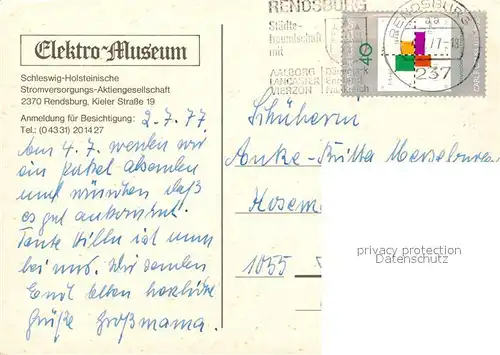 Elektro-Museum
Schleswig-Holsteinische
Stromversorgungs-Aktiengesellschaft
2370 Rendsburg, Kieler Straße 19
Anmeldung für Besichtigung:
Tel.: (0 43 31) 20 14 27
2.7.77
Am 4.7. werden wir
ein Paket absenden
und wünschen daß
es gut ankommt.
Tante Hilla ist nun
bei uns. Wir senden
Euch allen herzliche
Grüße Großmama.
RENDSBURG
Städte-
freundschaft
mit
AALBORG Dänemark
LANCASTER
VIERZON Frankreich
RENDSBURG
237
40
Anke-Britta
1055
privacy protection
Datenschutz